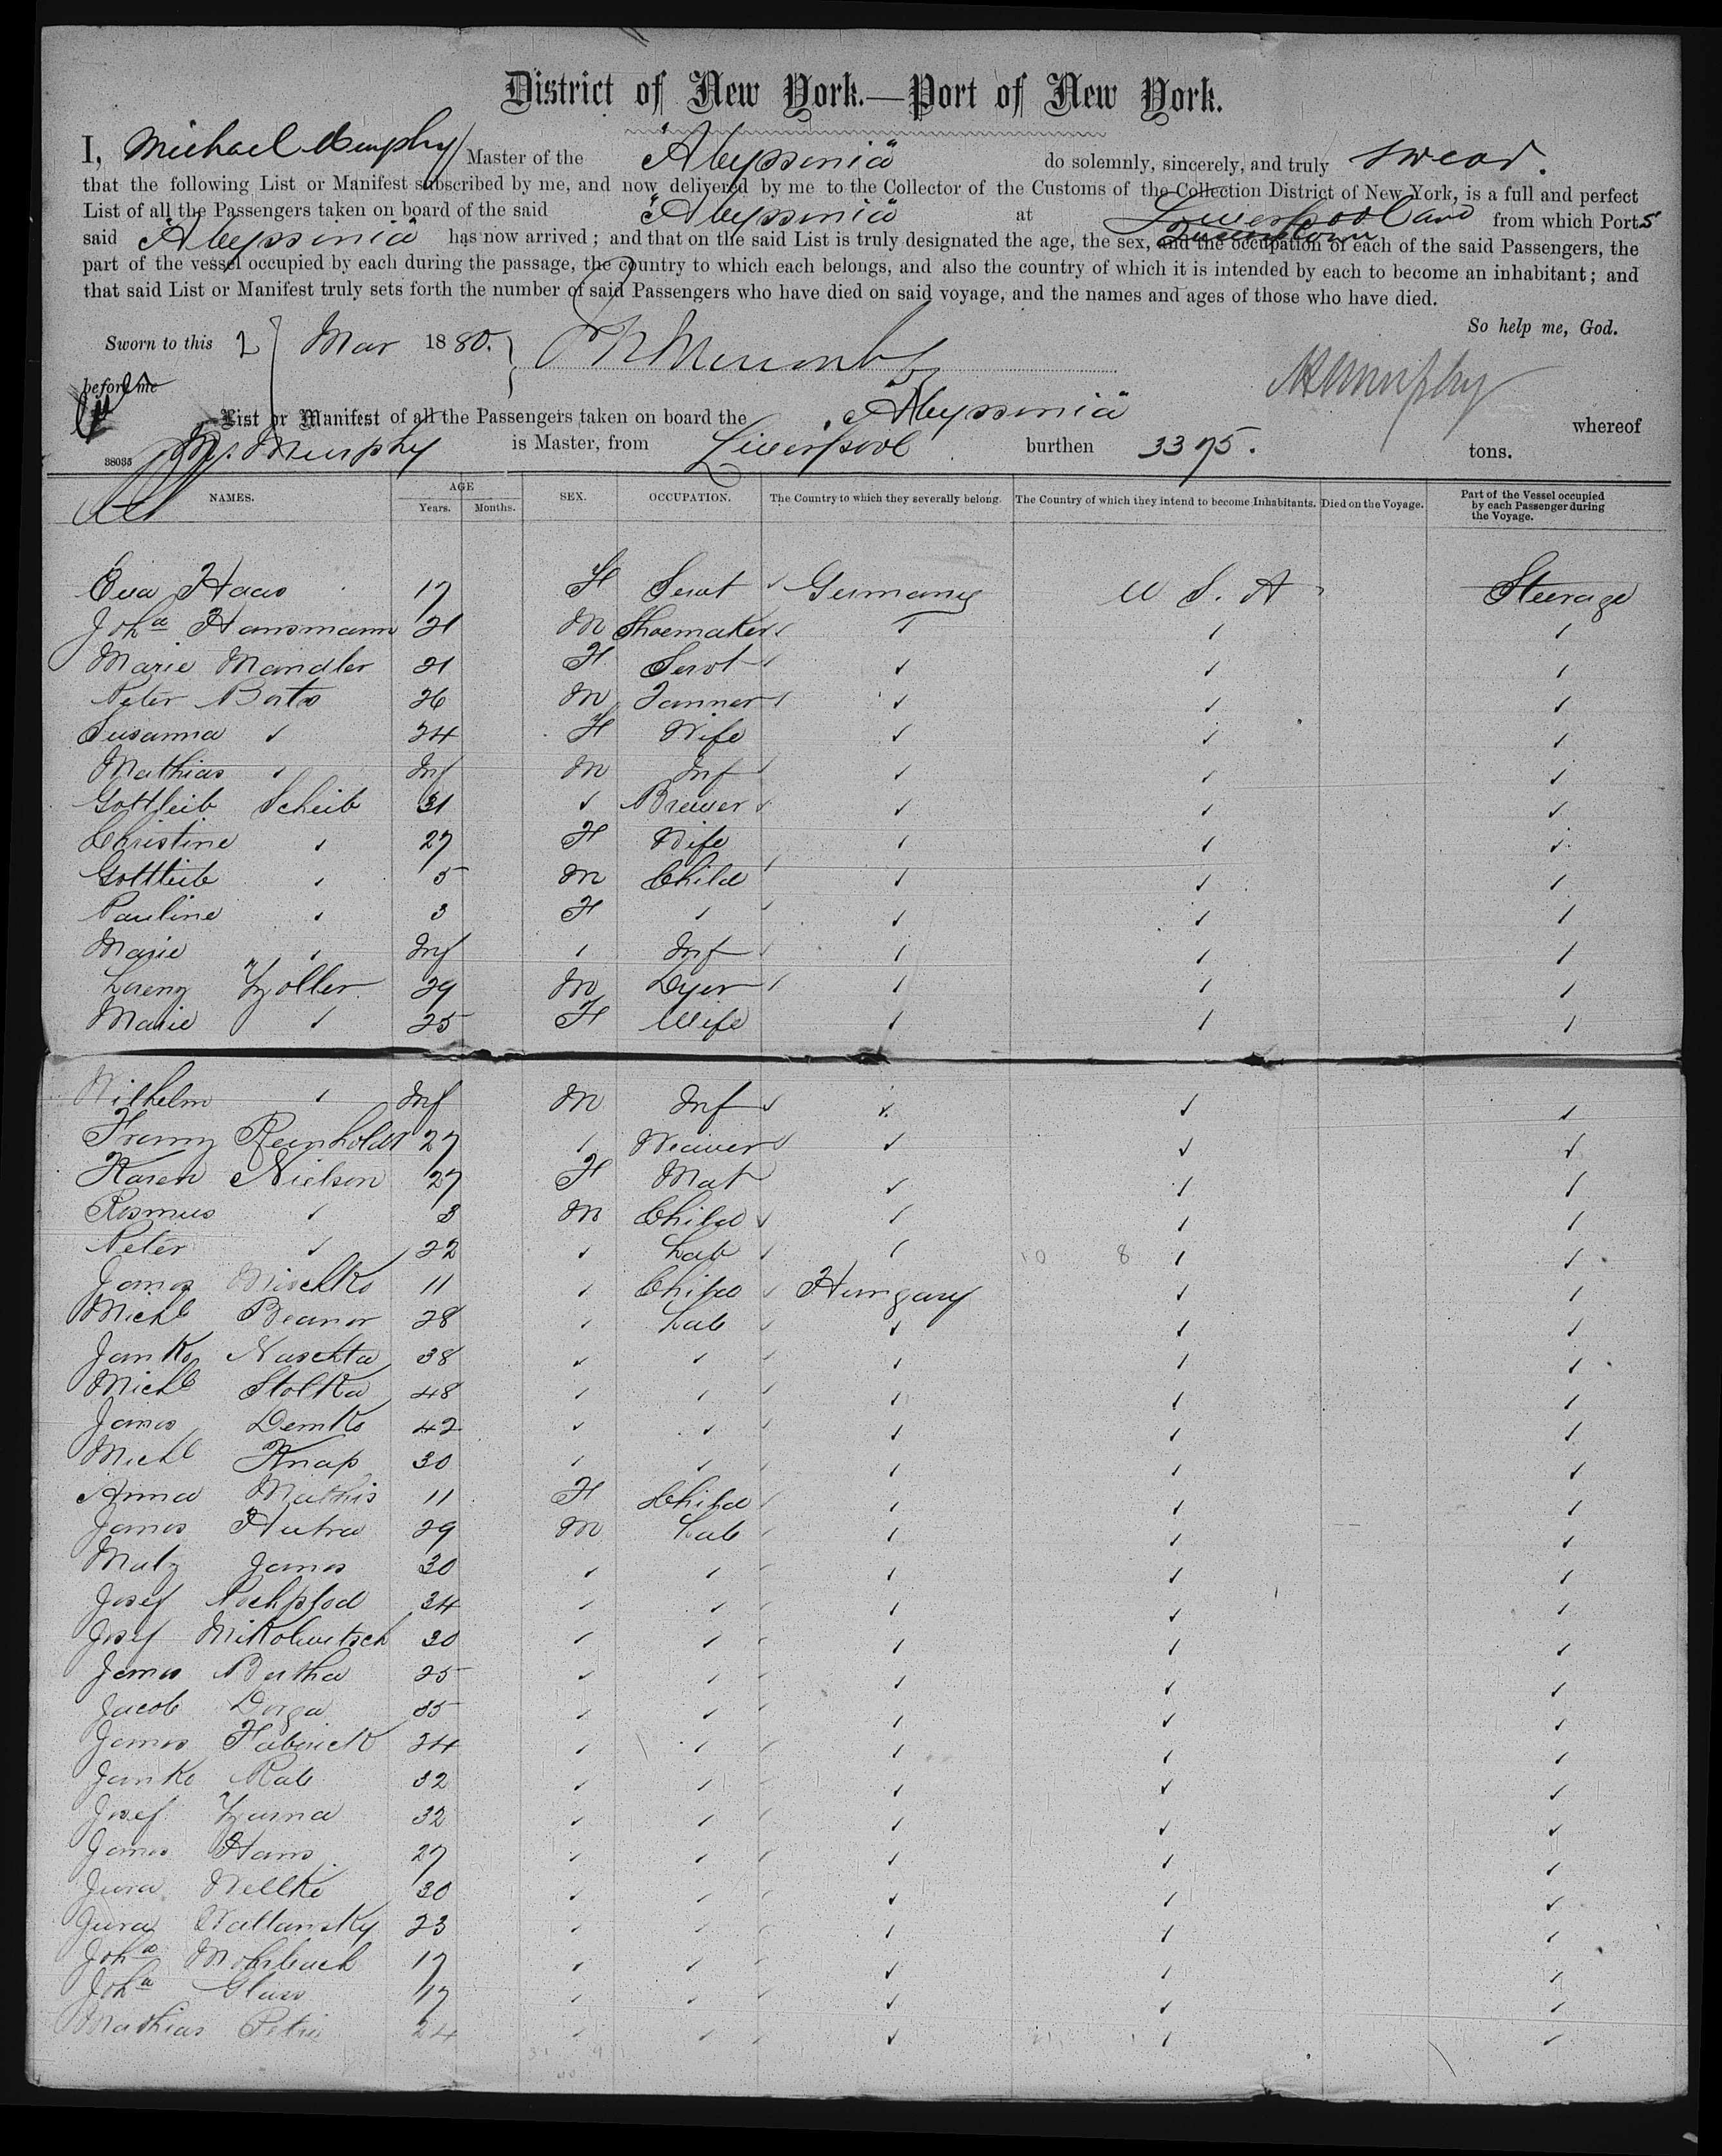 District of New York.—Port of New York.
I, Michael Murphy Master of the "Abyssinia" do solemnly, sincerely, and truly swear.
that the following List or Manifest subscribed by me, and now delivered by me to the Collector of the Customs of the Collection District of New York, is a full and perfect
List of all the Passengers taken on board of the said "Abyssinia" at Liverpool and Queenstown from which Ports
said "Abyssinia" has now arrived; and that on the said List is truly designated the age, the sex, and the occupation of each of the said Passengers, the
part of the vessel occupied by each during the passage, the country to which each belongs, and also the country of which it is intended by each to become an inhabitant; and
that said List or Manifest truly sets forth the number of said Passengers who have died on said voyage, and the names and ages of those who have died.
So help me, God.
Sworn to this 2 Mar 1880.
before me
M Murphy
List or Manifest of all the Passengers taken on board the "Abyssinia" whereof
38035 M. Murphy is Master, from Liverpool burthen 3375. tons.
NAMES. AGE Years. Months. SEX. OCCUPATION. The Country to which they severally belong. The Country of which they intend to become Inhabitants. Died on the Voyage. Part of the Vessel occupied by each Passenger during the Voyage.
Eva Haas 17 F Servt ✓ Germany U S. A Steerage
Joh<sup>a</sup> Hansmann 21 M Shoemaker ✓ ✓ ✓ ✓
Marie Mandler 21 F Servt ✓ ✓ ✓ ✓
Peter Borts 26 M Tanner ✓ ✓ ✓ ✓
Susanna ✓ 24 F Wife ✓ ✓ ✓
Mathias ✓ Inf M Inf ✓ ✓ ✓ ✓
Gottleib Scheib 31 ✓ Brewer ✓ ✓ ✓ ✓
Christine ✓ 27 F Wife ✓ ✓ ✓
Gottleib ✓ 5 M Child ✓ ✓ ✓ ✓
Pauline ✓ 3 F ✓ ✓ ✓ ✓ ✓
Marie ✓ Inf ✓ Inf ✓ ✓ ✓ ✓
Lorenz Zoller 29 M Dyer ✓ ✓ ✓ ✓
Marie ✓ 25 F Wife ✓ ✓ ✓
Wilhelm ✓ Inf M Inf ✓ ✓ ✓ ✓
Franz Reinholdt 27 ✓ Weaver ✓ ✓ ✓ ✓
Karen Nielson 27 F Mat ✓ ✓ ✓
Rasmus ✓ 3 M Child ✓ ✓ ✓ ✓
Peter ✓ 22 ✓ Lab ✓ ✓ 10 8 ✓ ✓
Janos Mischko 11 ✓ Child ✓ Hungary ✓ ✓
Michl Beanor 28 ✓ Lab ✓ ✓ ✓ ✓
Janko Naschta 38 ✓ ✓ ✓ ✓ ✓ ✓
Michl Stolka 48 ✓ ✓ ✓ ✓ ✓ ✓
Janos Demko 42 ✓ ✓ ✓ ✓ ✓ ✓
Michl Knap 30 ✓ ✓ ✓ ✓ ✓ ✓
Anna Mathis 11 F Child ✓ ✓ ✓ ✓
Janos Hutra 29 M Lab ✓ ✓ ✓ ✓
Matz Janos 30 ✓ ✓ ✓ ✓ ✓ ✓
Josef 34 ✓ ✓ ✓ ✓ ✓ ✓
Josef Mikolwitsch 30 ✓ ✓ ✓ ✓ ✓ ✓
Janos Bertha 25 ✓ ✓ ✓ ✓ ✓ ✓
Jacob Dorga 35 ✓ ✓ ✓ ✓ ✓ ✓
Janos 24 ✓ ✓ ✓ ✓ ✓ ✓
Janko Rab 32 ✓ ✓ ✓ ✓ ✓ ✓
Josef 32 ✓ ✓ ✓ ✓ ✓ ✓
Janos Hans 27 ✓ ✓ ✓ ✓ ✓ ✓
Jura Wellke 30 ✓ ✓ ✓ ✓ ✓ ✓
Jura Wallansky 23 ✓ ✓ ✓ ✓ ✓ ✓
Joh<sup>a</sup> 17 ✓ ✓ ✓ ✓ ✓ ✓
Joh<sup>a</sup> Glass 17 ✓ ✓ ✓ ✓ ✓ ✓
Mathias Petri 24 ✓ ✓ ✓ ✓ ✓ ✓